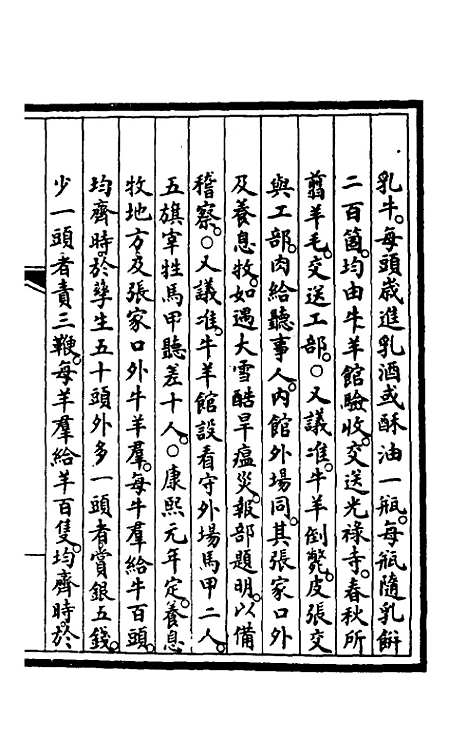 乳牛。每頭歲進乳酒或酥油一瓶。每瓶隨乳餠
二百箇。均由牛羊館驗收。交送光祿寺。春秋所
翦羊毛。交送工部。○又議准。牛羊倒斃。皮張交
與工部。肉給聽事人。內館外場同。其張家口外
及養息牧。如遇大雪酷旱瘟災。報部題明。以備
稽察。○又議准。牛羊館設看守外場馬甲二人。
五旗宰牲馬甲聽差十人。○康熙元年定。養息
牧地方及張家口外牛羊羣。每牛羣給牛百頭。
均齊時。於孳生五十頭外多一頭者。賞銀五錢。
少一頭者責三鞭。每羊羣給羊百隻。均齊時。於